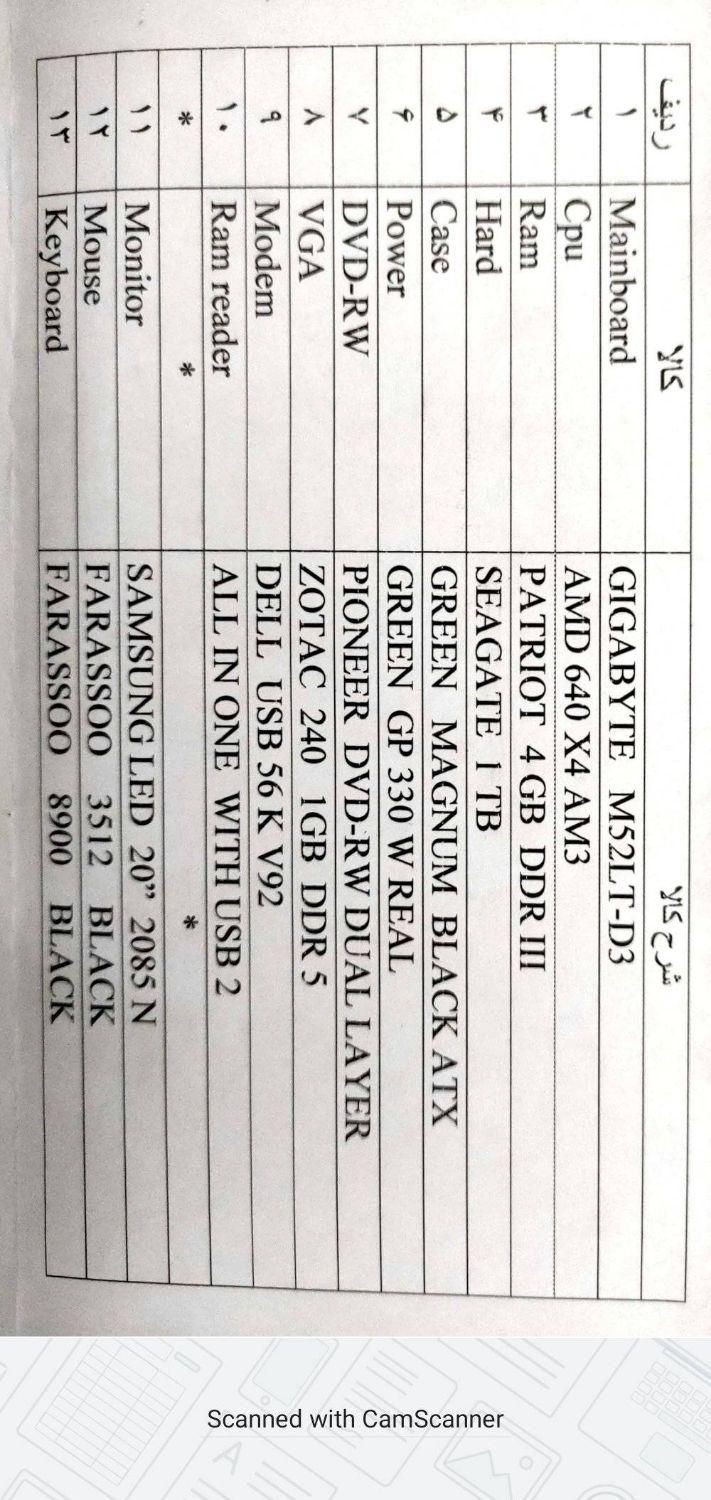 ردیف کالا شرح کالا
۱ Mainboard GIGABYTE M52LT-D3
۲ Cpu AMD 640 X4 AM3
۳ Ram PATRIOT 4 GB DDR III
۴ Hard SEAGATE 1 TB
۵ Case GREEN MAGNUM BLACK ATX
۶ Power GREEN GP 330 W REAL
۷ DVD-RW PIONEER DVD-RW DUAL LAYER
۸ VGA ZOTAC 240 1GB DDR 5
۹ Modem DELL USB 56 K V92
۱۰ Ram reader ALL IN ONE WITH USB 2
* * *
۱۱ Monitor SAMSUNG LED 20” 2085 N
۱۲ Mouse FARASSOO 3512 BLACK
۱۳ Keyboard FARASSOO 8900 BLACK
Scanned with CamScanner